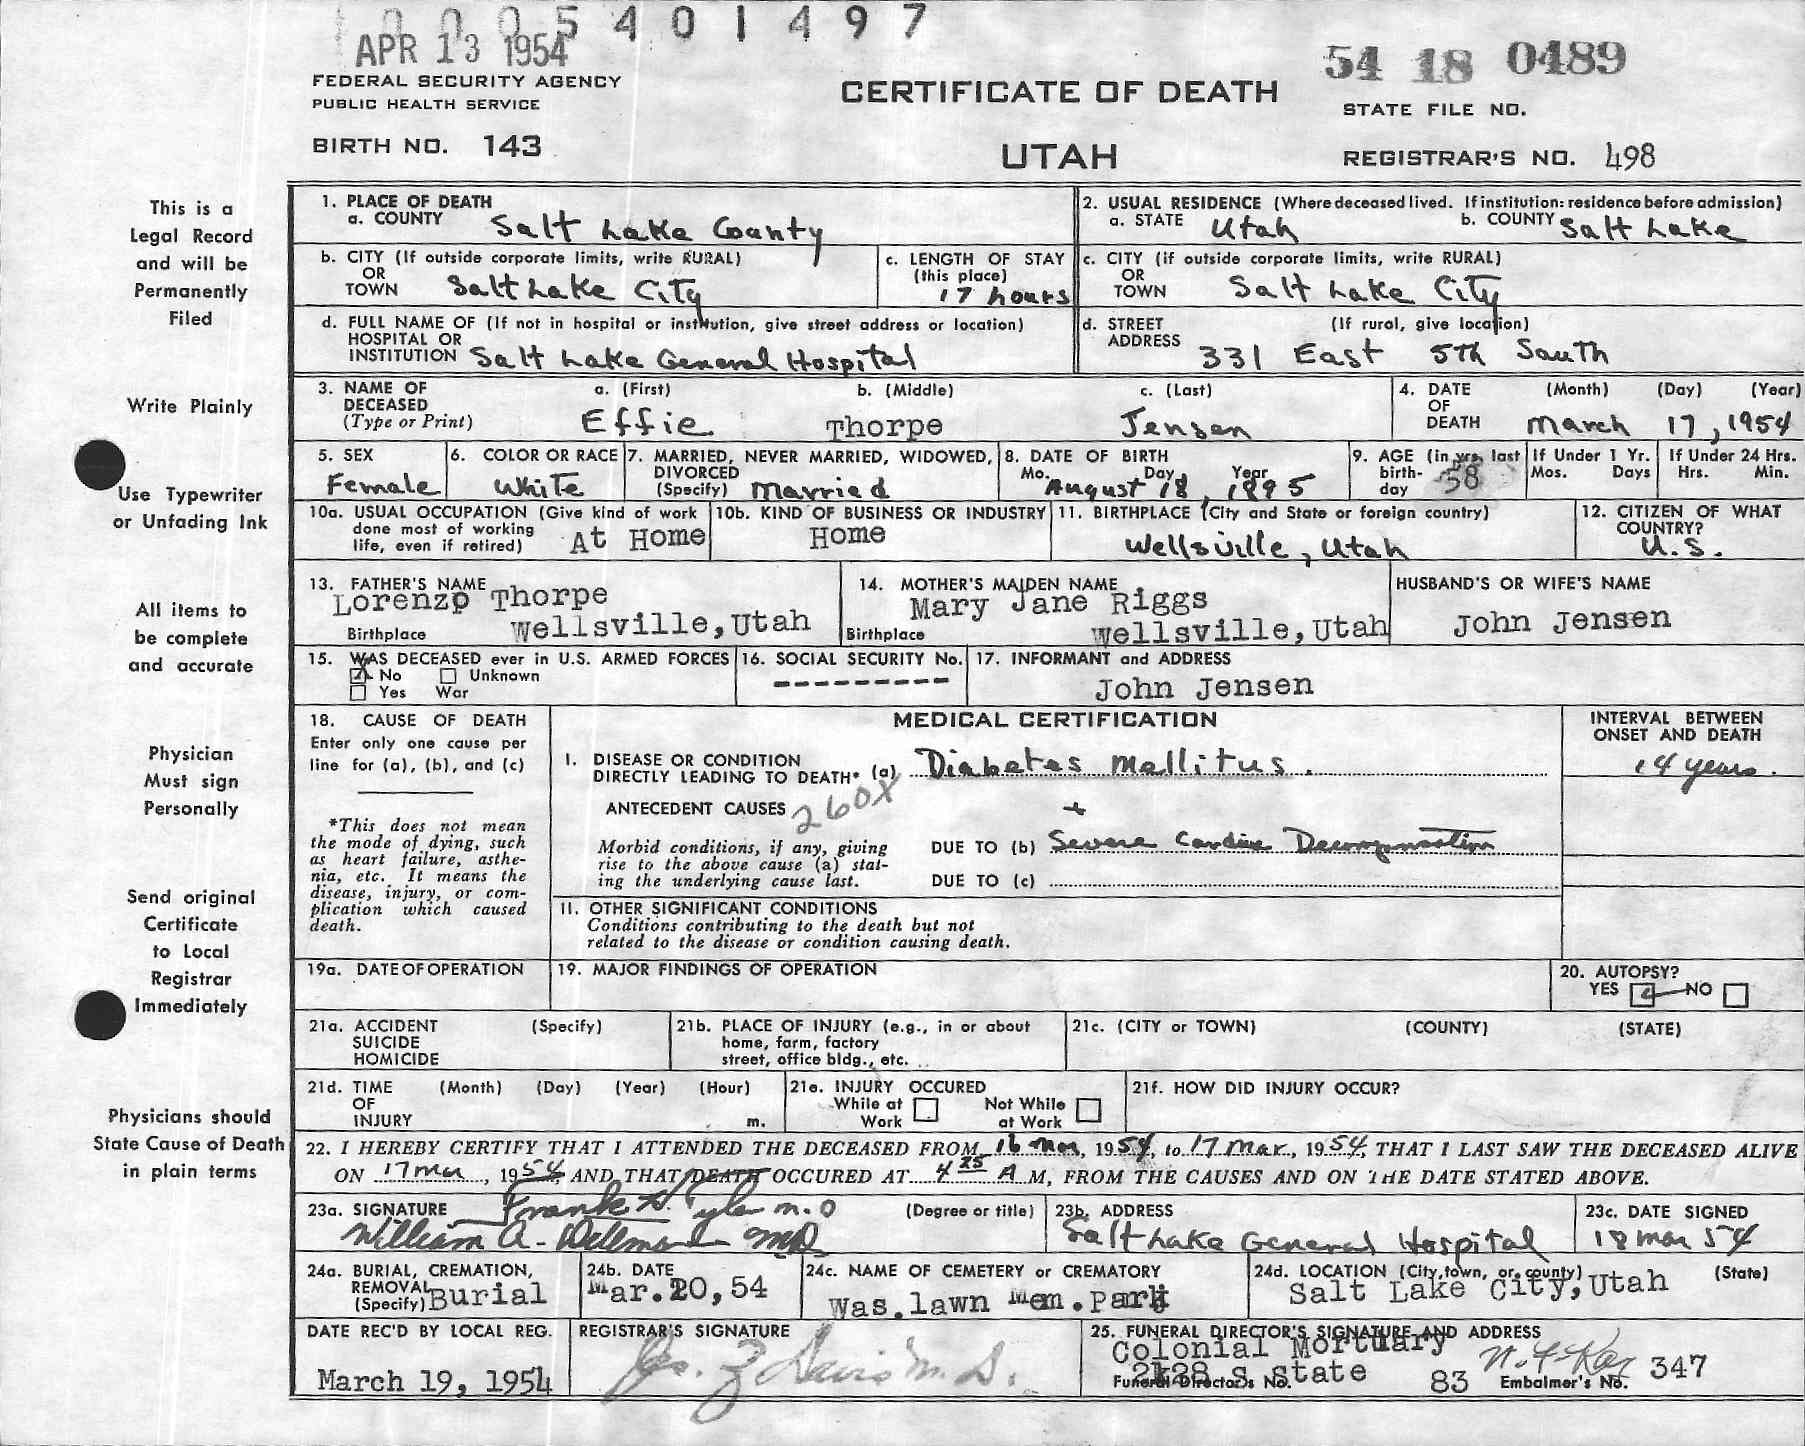 0 0 0 5 4 0 1 4 9 7
APR 13 1954
54 18 0489
FEDERAL SECURITY AGENCY
PUBLIC HEALTH SERVICE
CERTIFICATE OF DEATH
STATE FILE NO.
BIRTH NO. 143
UTAH
REGISTRAR'S NO. 498
This is a
Legal Record
and will be
Permanently
Filed
Write Plainly
Use Typewriter
or Unfading Ink
All items to
be complete
and accurate
Physician
Must sign
Personally
Send original
Certificate
to Local
Registrar
Immediately
Physicians should
State Cause of Death
in plain terms
1. PLACE OF DEATH
a. COUNTY Salt Lake County
2. USUAL RESIDENCE (Where deceased lived. If institution: residence before admission)
a. STATE Utah b. COUNTY Salt Lake
b. CITY (If outside corporate limits, write RURAL)
OR
TOWN Salt Lake City
c. LENGTH OF STAY
(this place)
17 hours
c. CITY (if outside corporate limits, write RURAL)
OR
TOWN Salt Lake City
d. FULL NAME OF (If not in hospital or institution, give street address or location)
HOSPITAL OR
INSTITUTION Salt Lake General Hospital
d. STREET (If rural, give location)
ADDRESS 331 East 5th South
3. NAME OF a. (First) b. (Middle) c. (Last)
DECEASED
(Type or Print) Effie Thorpe Jensen
4. DATE (Month) (Day) (Year)
OF
DEATH March 17, 1954
5. SEX
Female
6. COLOR OR RACE
White
7. MARRIED, NEVER MARRIED, WIDOWED,
DIVORCED
(Specify) Married
8. DATE OF BIRTH
Mo. Day Year
August 18, 1895
9. AGE (in yrs. last
birth-
day 58
If Under 1 Yr.
Mos. Days
If Under 24 Hrs.
Hrs. Min.
10a. USUAL OCCUPATION (Give kind of work
done most of working
life, even if retired) At Home
10b. KIND OF BUSINESS OR INDUSTRY
Home
11. BIRTHPLACE (City and State or foreign country)
Wellsville, Utah
12. CITIZEN OF WHAT
COUNTRY?
U.S.
13. FATHER'S NAME
Lorenzo Thorpe
Birthplace Wellsville, Utah
14. MOTHER'S MAIDEN NAME
Mary Jane Riggs
Birthplace Wellsville, Utah
HUSBAND'S OR WIFE'S NAME
John Jensen
15. WAS DECEASED ever in U.S. ARMED FORCES
No Unknown
Yes War
16. SOCIAL SECURITY No.
---------
17. INFORMANT and ADDRESS
John Jensen
18. CAUSE OF DEATH
Enter only one cause per
line for (a), (b), and (c)
*This does not mean
the mode of dying, such
as heart failure, asthe-
nia, etc. It means the
disease, injury, or com-
plication which caused
death.
MEDICAL CERTIFICATION
I. DISEASE OR CONDITION
DIRECTLY LEADING TO DEATH* (a) Diabetes Mellitus.
ANTECEDENT CAUSES 260X +
Morbid conditions, if any, giving
rise to the above cause (a) stat-
ing the underlying cause last.
DUE TO (b) Severe Cardiac Decompensation
DUE TO (c)
II. OTHER SIGNIFICANT CONDITIONS
Conditions contributing to the death but not
related to the disease or condition causing death.
INTERVAL BETWEEN
ONSET AND DEATH
14 years.
19a. DATE OF OPERATION
19. MAJOR FINDINGS OF OPERATION
20. AUTOPSY?
YES NO
21a. ACCIDENT (Specify)
SUICIDE
HOMICIDE
21b. PLACE OF INJURY (e.g., in or about
home, farm, factory
street, office bldg., etc.
21c. (CITY or TOWN) (COUNTY) (STATE)
21d. TIME (Month) (Day) (Year) (Hour)
OF
INJURY m.
21e. INJURY OCCURED
While at Not While
Work at Work
21f. HOW DID INJURY OCCUR?
22. I HEREBY CERTIFY THAT I ATTENDED THE DECEASED FROM 16 Mar, 1954, to 17 Mar., 1954, THAT I LAST SAW THE DECEASED ALIVE
ON 17 Mar, 1954, AND THAT DEATH OCCURED AT 4 25 A M, FROM THE CAUSES AND ON THE DATE STATED ABOVE.
23a. SIGNATURE Frank H. Tyler M.D (Degree or title)
William A. MD
23b. ADDRESS
Salt Lake General Hospital
23c. DATE SIGNED
18 Mar 54
24a. BURIAL, CREMATION,
REMOVAL
(Specify) Burial
24b. DATE
Mar.20,54
24c. NAME OF CEMETERY or CREMATORY
Was.lawn Mem.Park
24d. LOCATION (City, town, or county) (State)
Salt Lake City, Utah
DATE REC'D BY LOCAL REG.
March 19, 1954
REGISTRAR'S SIGNATURE
Davis M.D.
25. FUNERAL DIRECTOR'S SIGNATURE AND ADDRESS
Colonial Mortuary
2128 S. State
Funeral Director's No. 83 Embalmer's No. 347